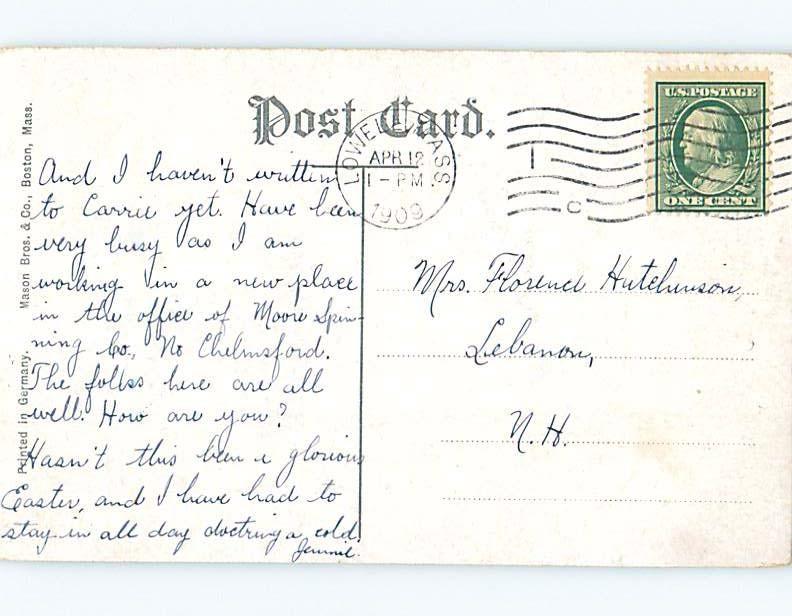 Post Card.
U.S. POSTAGE
ONE CENT
LOWELL, MASS
APR 12
1 - PM
1909
1
C
Printed in Germany. Mason Bros. & Co., Boston, Mass.
And I haven't written
to Carrie yet. Have been
very busy as I am
working in a new place
in the office of Moore Spin-
ning Co., No Chelmsford.
The folks here are all
well. How are you?
Hasn't this been a glorious
Easter, and I have had to
stay in all day doctring a cold.
Jennie.
Mrs. Florence Hutchinson,
Lebanon,
N.H.